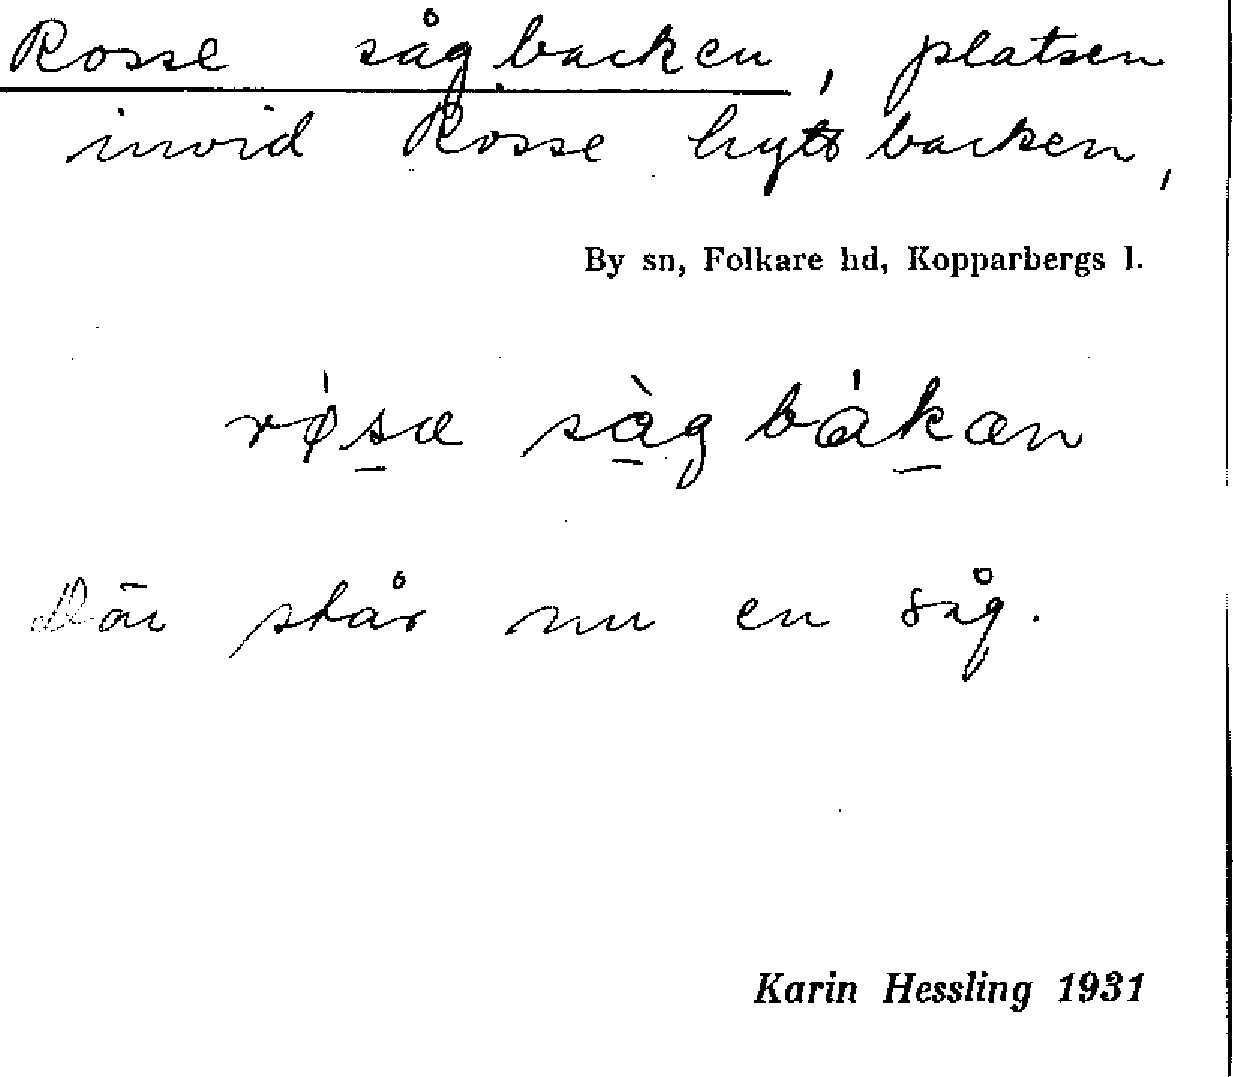 Rosse sågbacken, platsen
invid Rosse hyttbacken,
By sn, Folkare hd, Kopparbergs l.
rø̀sæ sàg bákæn
Där står nu en såg.
Karin Hessling 1931